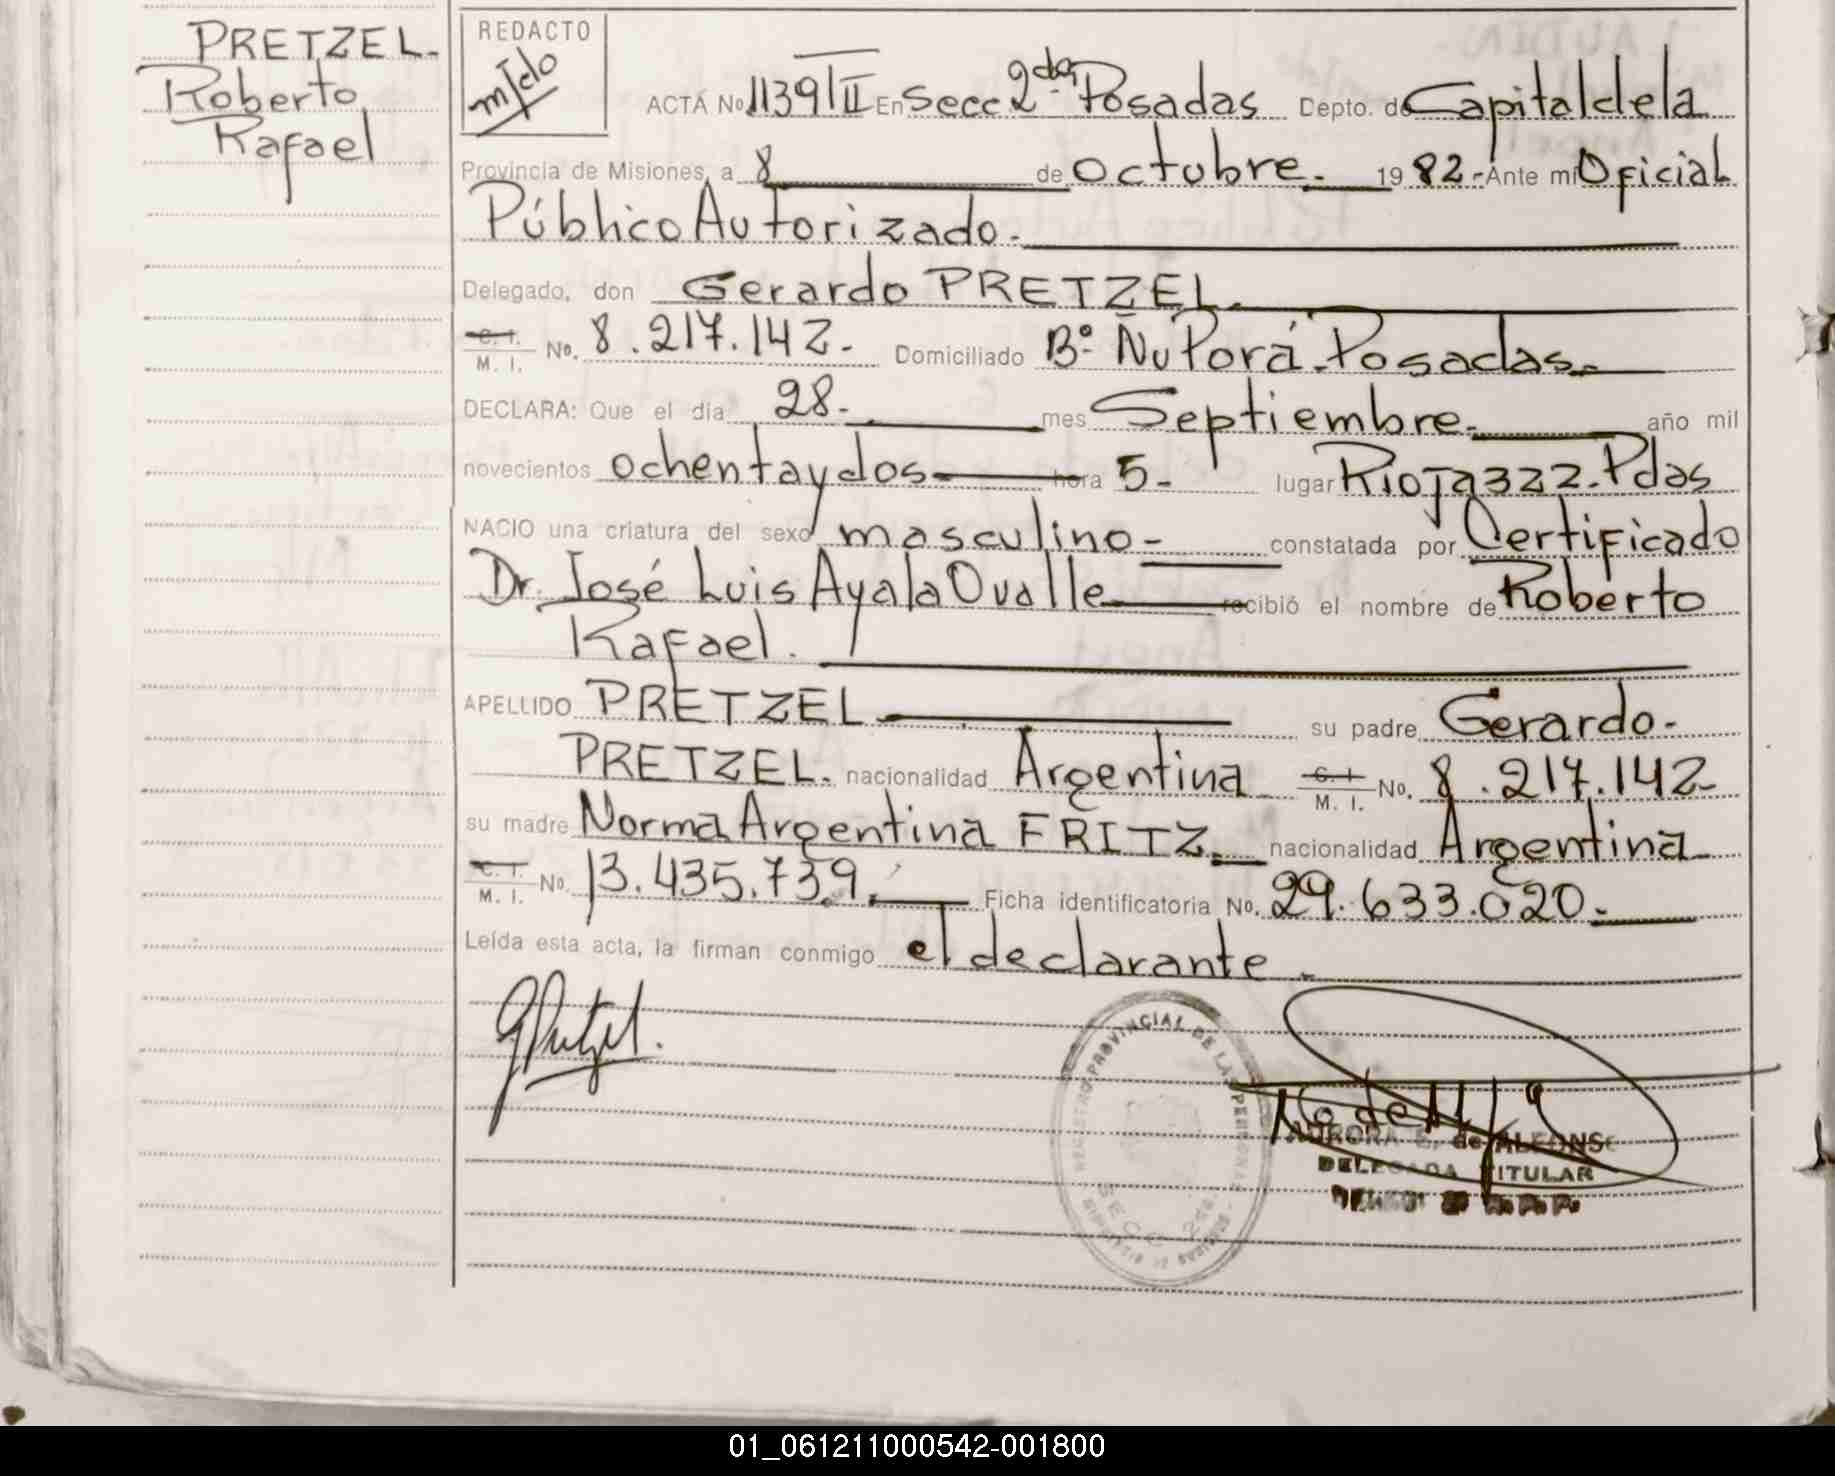 PRETZEL.
Roberto
Rafael
REDACTO
ACTA No. 1139 T II En Secc 2da Posadas Depto. de Capital de la
Provincia de Misiones, a 8 de Octubre. 1982.- Ante mi Oficial
Público Autorizado.
Delegado, don Gerardo PRETZEL.
C. I. M. I. No. 8.217.142. Domiciliado Bº Ñu Porá. Posadas.
DECLARA: Que el dia 28. mes Septiembre. año mil
novecientos ochenta y dos hora 5- lugar Rioja 322. Pdas
NACIO una criatura del sexo masculino- constatada por Certificado
Dr. José Luis Ayala Ovalle recibió el nombre de Roberto
Rafael.
APELLIDO PRETZEL su padre Gerardo.
PRETZEL. nacionalidad Argentina C. I. M. I. No. 8.217.142-
su madre Norma Argentina FRITZ. nacionalidad Argentina
C. I. M. I. No. 13.435.739. Ficha identificatoria No. 29.633.020.
Leída esta acta, la firman conmigo el declarante.
G Pretzel.
REGISTRO PROVINCIAL DE LAS PERSONAS
SECC 2da.
AURORA de ALFONSO
DELEGADA TITULAR
01_061211000542-001800